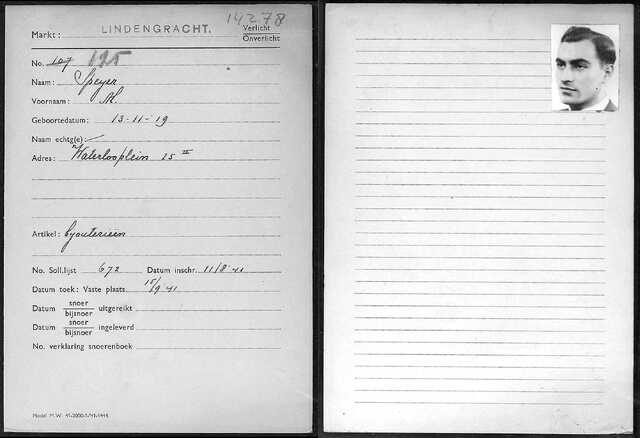 14278
Markt: LINDENGRACHT. Verlicht
Onverlicht
No. 107 125
Naam: Speyer
Voornaam: M.
Geboortedatum: 13-11-19
Naam echtg(e):
Adres: Waterlooplein 25 II
Artikel: byouterieën
No. Soll.lijst 672 Datum inschr. 11/8-41
Datum toek: Vaste plaats 15/9-41
Datum snoer/bijsnoer uitgereikt
Datum snoer/bijsnoer ingeleverd
No. verklaring snoerenboek